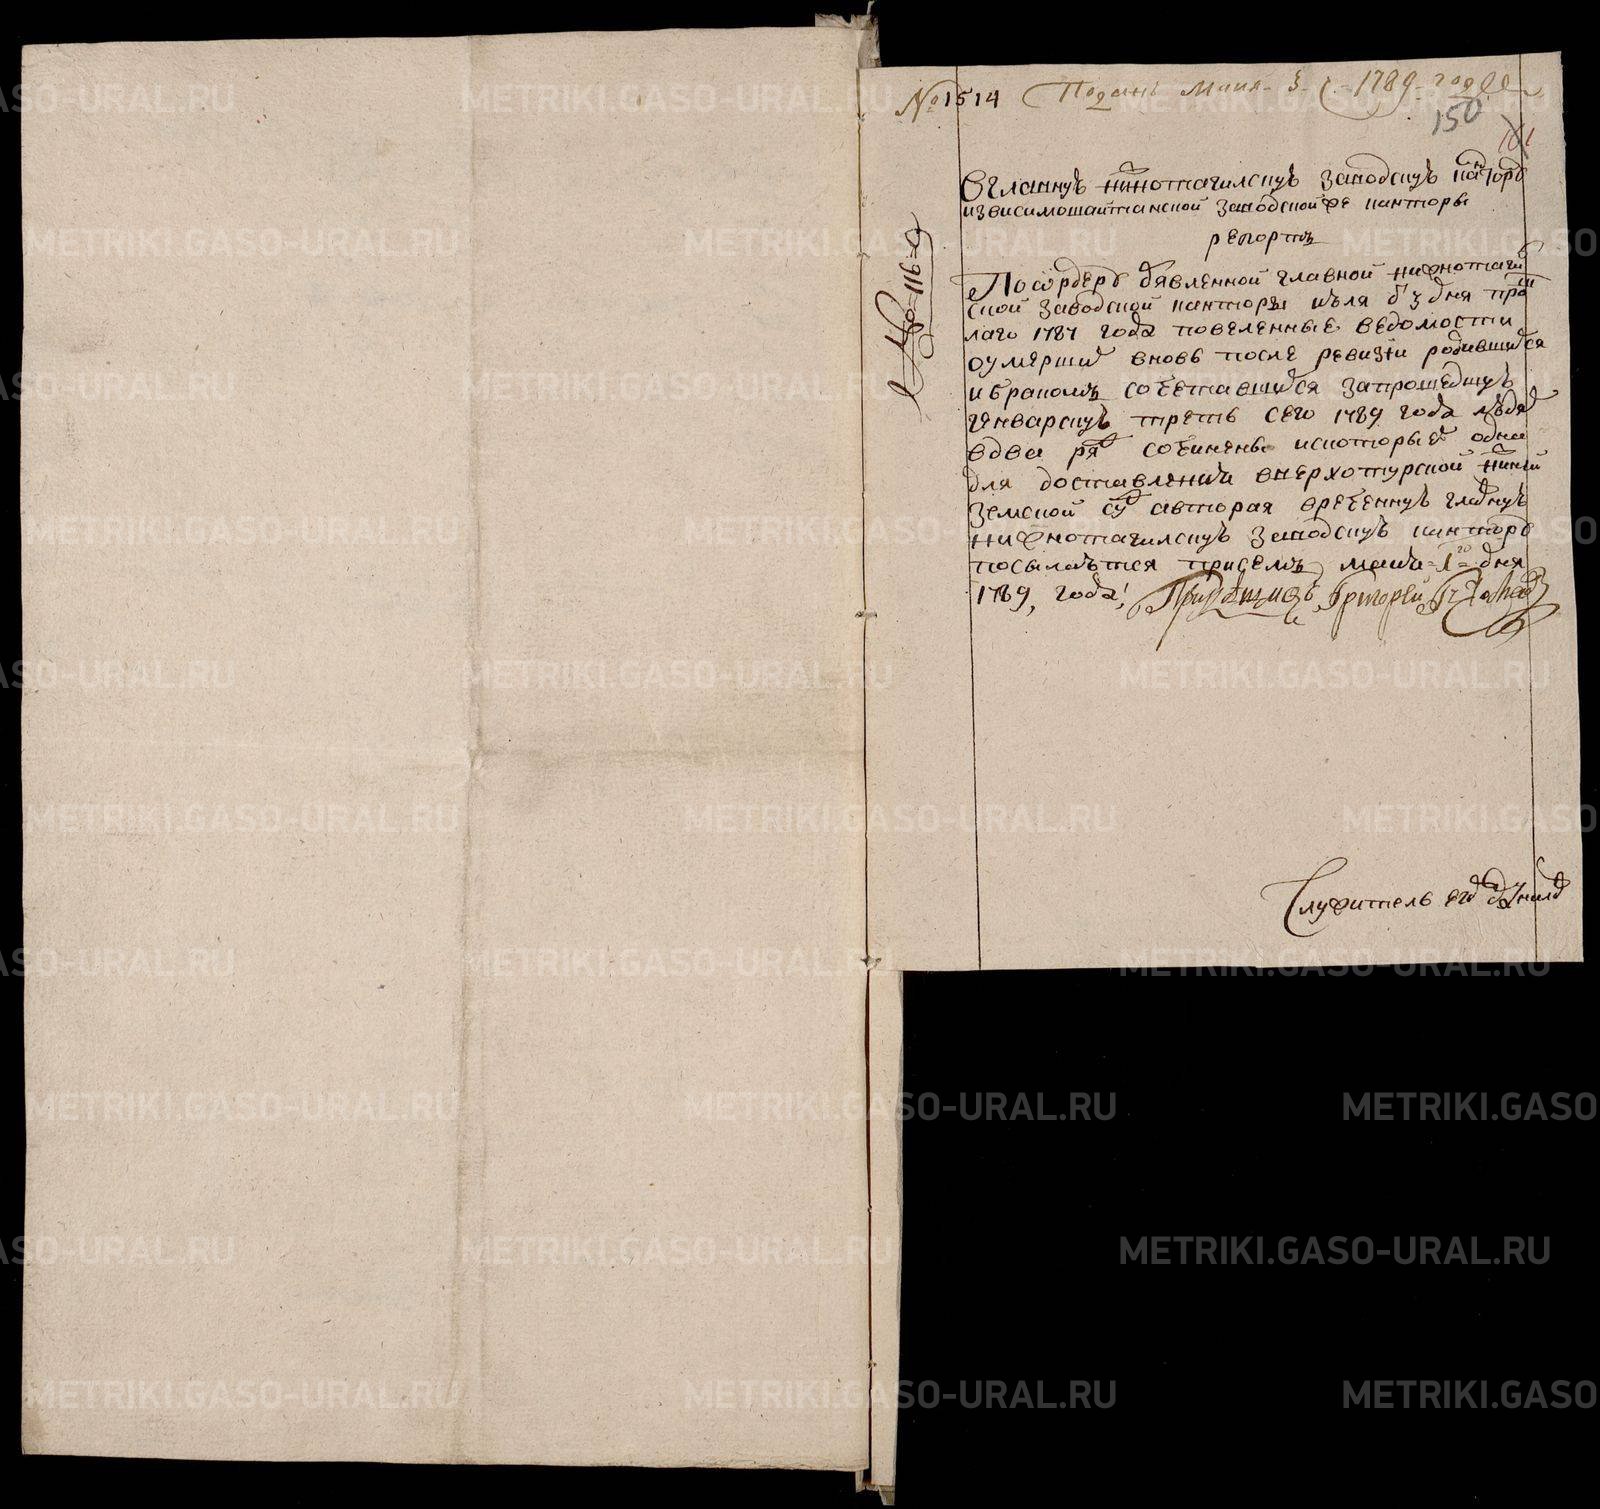 № 1514 Поданъ Маия 3 г. 1789 года
150
161
№ 116
В главную нижнотагилскую заводскую кантору
из висимошайтанской заводской же канторы
репортъ
По ордеру оъявленной главной нижнотаги
ской заводской канторы июля 3 дня прош
лаго 1787 года повеленные ведомости
о умерших вновь после ревизии родившихся
и браком сочетавшихся за прошедшую
генварскую треть сего 1789 года
в два ряд сочинены ис которых одна
для доставлении в верхотурской нижней
земской суд а вторая в реченную главную
нижнотагилскую заводскую кантору
посылаютца при сем маия 1го дня
1789, года, Прикащикъ Григорей
Служитель
METRIKI.GASO-URAL.RU